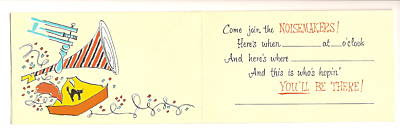 Come join the NOISEMAKERS!
Here's when ______ at ___ o'clock
And here's where ______
And this is who's hopin'
YOU'LL BE THERE!